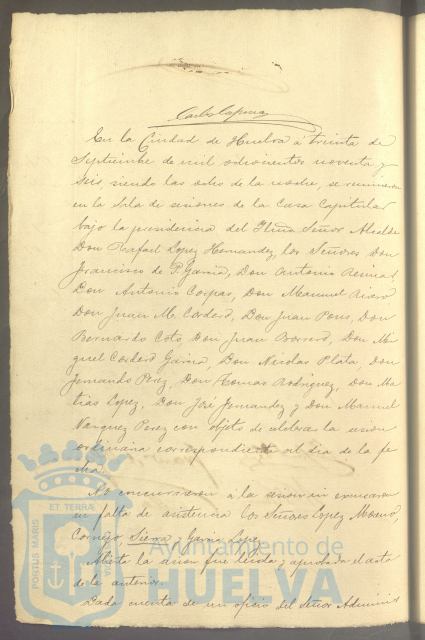 Carlos
En la Ciudad de Huelva á treinta de
Septiembre de mil ochocientos noventa y
seis, siendo las ocho de la noche, se reunieron
en la Sala de sesiones de la Casa Capitular
bajo la presidencia del Iltmo Señor Alcalde
Don Rafael Lopez Hernandez, los Señores Don
Francisco de P. Garcia, Don Antonio
Don Antonio Corpas, Don Manuel Rivero
Don Juan M. Cordero, Don Juan Pons, Don
Bernardo Coto, Don Juan Borrero, Don Mi
guel Cordero Garcia, Don Nicolas Plata, Don
Fernando Perez, Don Tomas Rodriguez, Don Ma
tias Lopez, Don José Fernandez y Don Manuel
Vazquez Perez con objeto de celebrar la sesion
ordinaria correspondiente al dia de la fe
cha.
No concurrieron á la sesion ni excusaron
su falta de asistencia los Señores Lopez Moreno,
Cornejo, Sierra y Garcia Lopez.
Abierta la sesion fue leida y aprobada el acta
de la anterior.
Dada cuenta de un oficio del Señor Adminis
PORTUS MARIS ET TERRÆ
Ayuntamiento de
HUELVA